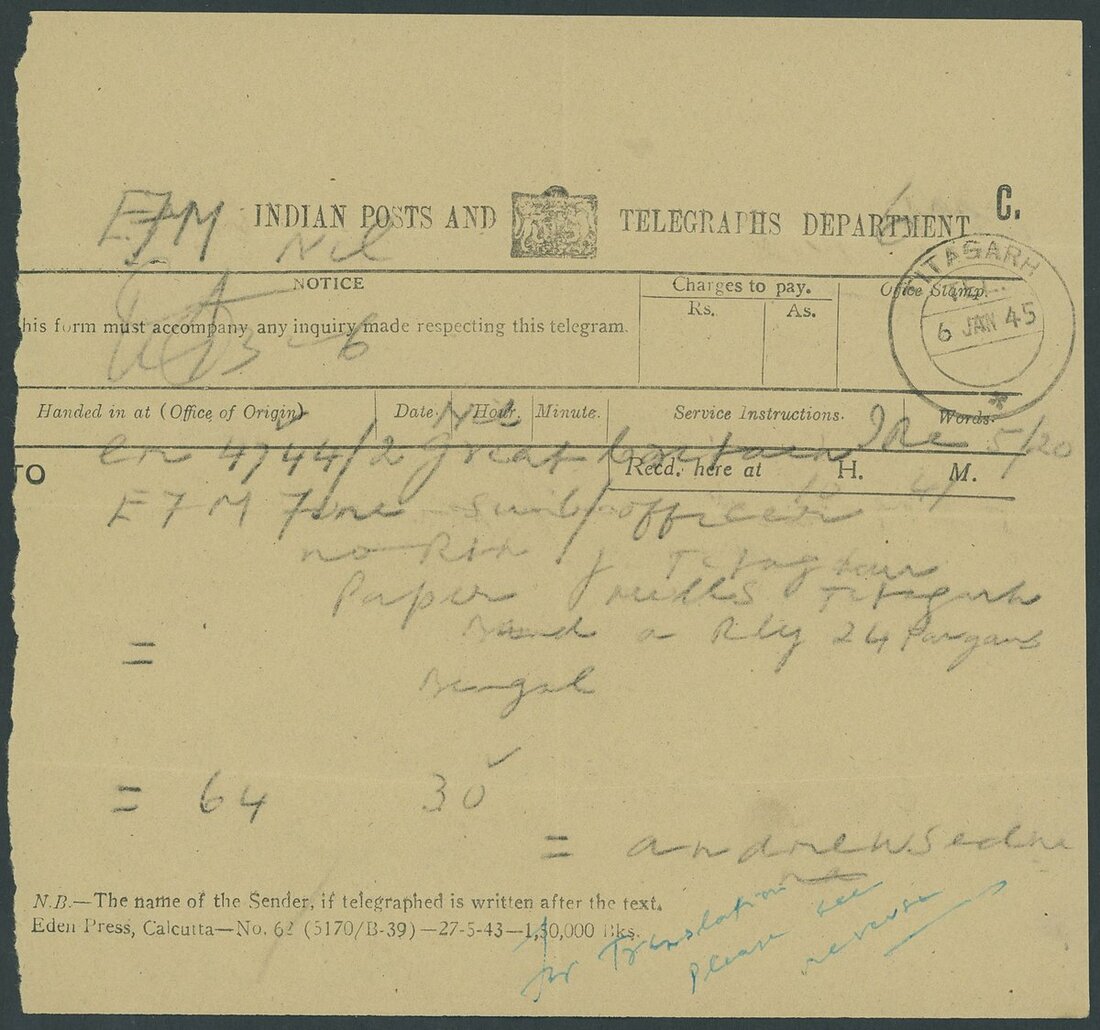 EFM INDIAN POSTS AND TELEGRAPHS DEPARTMENT C.
Nil
NOTICE
his form must accompany any inquiry made respecting this telegram.
Charges to pay.
Rs. As.
Office Stamp.
TITAGARH
6 JAN 45
6
Handed in at (Office of Origin) Date Hour. Minute. Service Instructions. Words.
Nil
4744/2 Great Britain 5/20
TO Recd. here at H. M.
EFM officer
Titaghur
Paper mills Titagarh
= a Rly 24 Pargans
Bengal
= 64 30
= andrewsedne
na
N.B.—The name of the Sender, if telegraphed is written after the text.
Eden Press, Calcutta—No. 62 (5170/B-39)—27-5-43—1,50,000 Bks.
for Translation
please see
reverse